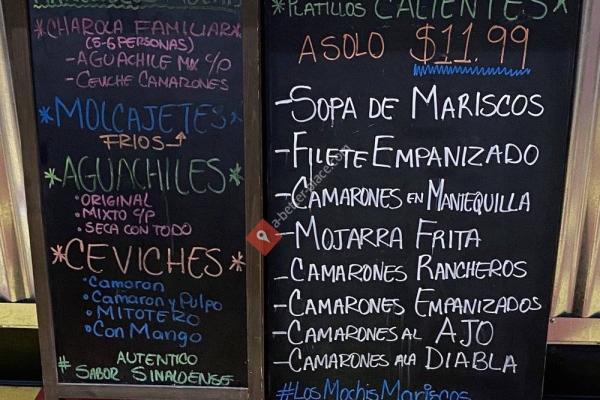 *CHAROLA FAMILIAR*
(5-6 PERSONAS)
- AGUACHILE MIX C/P
- CEVICHE CAMARONES
*MOLCAJETES*
FRIOS
*AGUACHILES*
• ORIGINAL
• MIXTO C/P
• SECA CON TODO
*CEVICHES*
• Camaron
• Camaron y Pulpo
• MITOTERO
• Con Mango
AUTENTICO
# SABOR SINALOENSE
*PLATILLOS CALIENTES*
A SOLO $11.99
- SOPA DE MARISCOS
- FILETE EMPANIZADO
- CAMARONES EN MANTEQUILLA
- MOJARRA FRITA
- CAMARONES RANCHEROS
- CAMARONES EMPANIZADOS
- CAMARONES AL AJO
- CAMARONES ALA DIABLA
#LOS MOCHIS MARISCOS
a-better-place.com